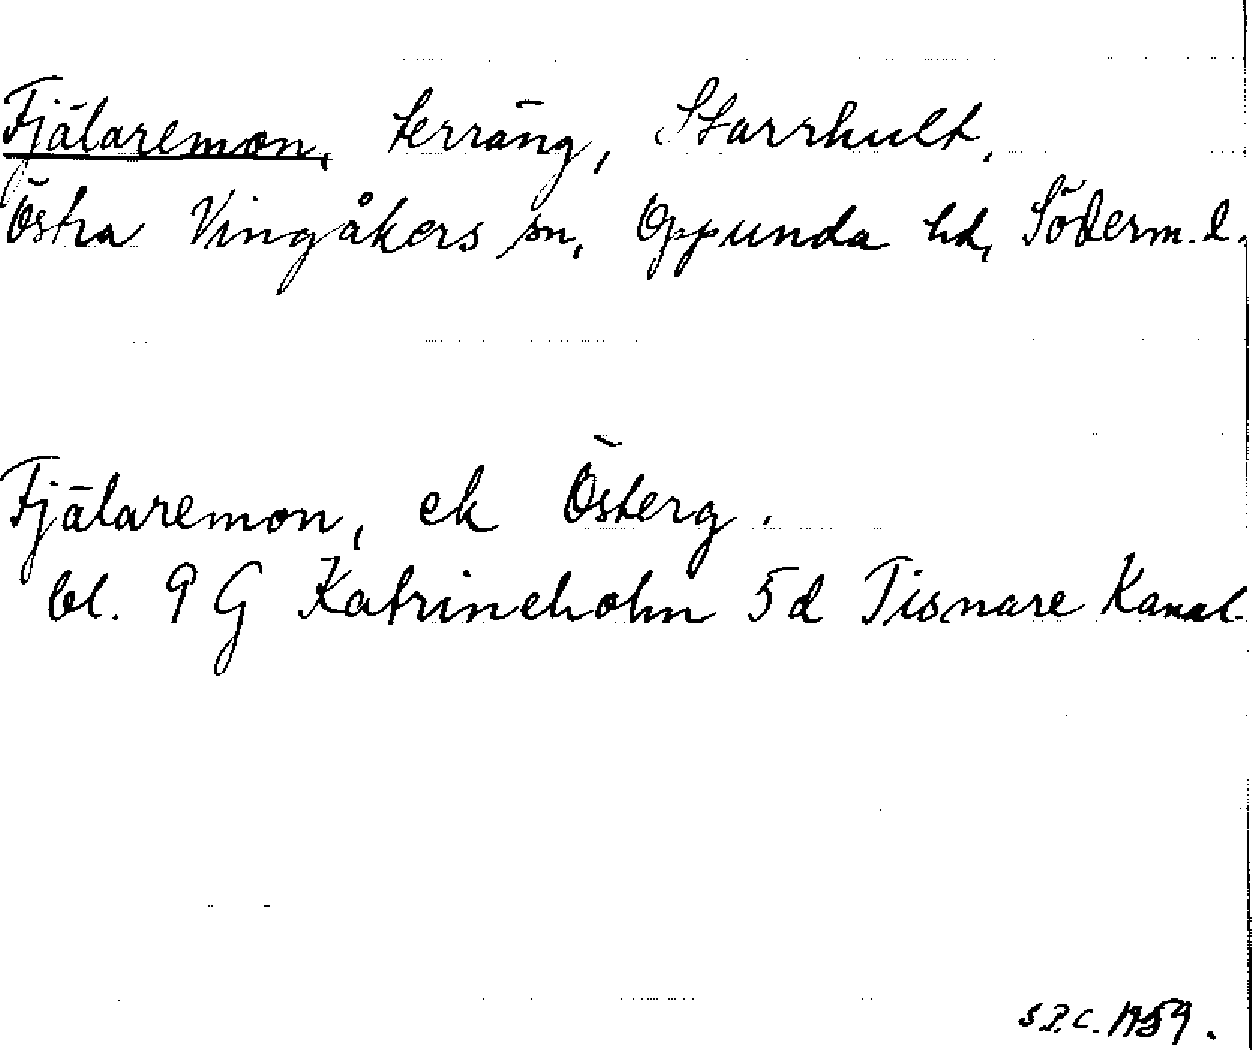 Fjälaremon, terräng, Starrhult,
Östra Vingåkers sn, Oppunda hd, Söderm. l.
Fjälaremon, ek Österg.
bl. 9 G Katrineholm 5d Tisnare Kanal
S.P.C. 1959.